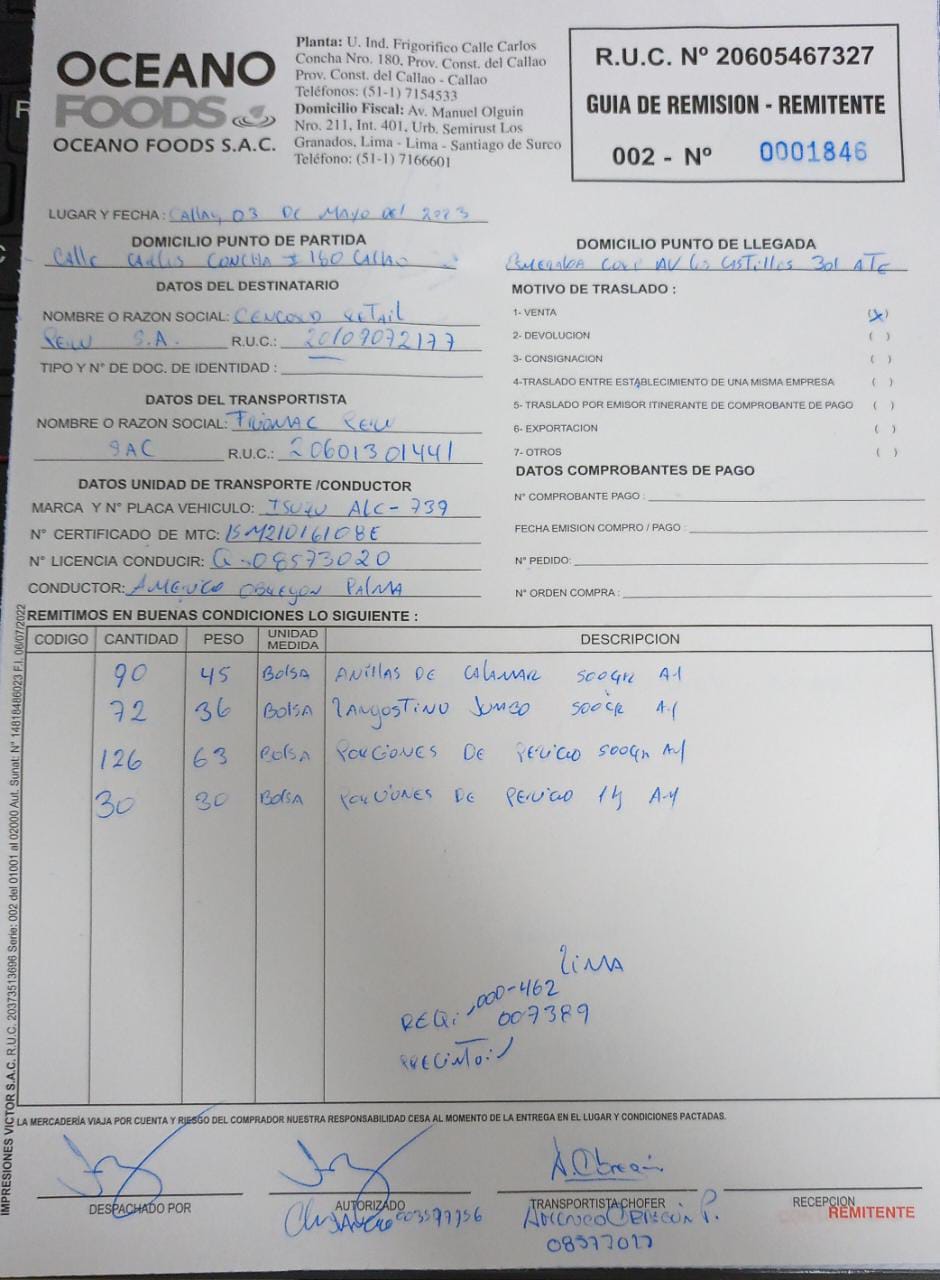 OCEANO
FOODS
OCEANO FOODS S.A.C.
Planta: U. Ind. Frigorifico Calle Carlos
Concha Nro. 180, Prov. Const. del Callao
Prov. Const. del Callao - Callao
Teléfonos: (51-1) 7154533
Domicilio Fiscal: Av. Manuel Olguin
Nro. 211, Int. 401, Urb. Semirust Los
Granados, Lima - Lima - Santiago de Surco
Teléfono: (51-1) 7166601
R.U.C. Nº 20605467327
GUIA DE REMISION - REMITENTE
002 - Nº 0001846
LUGAR Y FECHA: Callao, 03 DE MAYO del 2023
DOMICILIO PUNTO DE PARTIDA
Calle Carlos CONCHA # 180 Callao
DOMICILIO PUNTO DE LLEGADA
ESMERALDA CORP AV Los CASTILLOS 301 ATE
DATOS DEL DESTINATARIO
NOMBRE O RAZON SOCIAL: CENCOSUD RETAIL
PERU S.A. R.U.C.: 20109072177
TIPO Y N° DE DOC. DE IDENTIDAD :
MOTIVO DE TRASLADO :
1- VENTA (x)
2- DEVOLUCION ( )
3- CONSIGNACION ( )
4-TRASLADO ENTRE ESTABLECIMIENTO DE UNA MISMA EMPRESA ( )
5- TRASLADO POR EMISOR ITINERANTE DE COMPROBANTE DE PAGO ( )
6- EXPORTACION ( )
7- OTROS ( )
DATOS DEL TRANSPORTISTA
NOMBRE O RAZON SOCIAL: FRIOMAC PERU
SAC R.U.C.: 20601301441
DATOS UNIDAD DE TRANSPORTE /CONDUCTOR
MARCA Y N° PLACA VEHICULO: ISUZU ALC-739
N° CERTIFICADO DE MTC: 15M21016108E
N° LICENCIA CONDUCIR: Q-08573020
CONDUCTOR: AMERICO OBREGON PALMA
DATOS COMPROBANTES DE PAGO
N° COMPROBANTE PAGO :
FECHA EMISION COMPRO / PAGO :
N° PEDIDO:
N° ORDEN COMPRA :
REMITIMOS EN BUENAS CONDICIONES LO SIGUIENTE :
CODIGO CANTIDAD PESO UNIDAD MEDIDA DESCRIPCION
90 45 BOLSA ANILLAS DE CALAMAR 500GR A-1
72 36 BOLSA LANGOSTINO JUMBO 500GR A-1
126 63 BOLSA PORCIONES DE PERICO 500GR A-1
30 30 BOLSA PORCIONES DE PERICO 1k A-1
LIMA
000-462
REQ: 007389
PRECINTO:
LA MERCADERÍA VIAJA POR CUENTA Y RIESGO DEL COMPRADOR NUESTRA RESPONSABILIDAD CESA AL MOMENTO DE LA ENTREGA EN EL LUGAR Y CONDICIONES PACTADAS.
A. Obregón
DESPACHADO POR
AUTORIZADO
TRANSPORTISTA CHOFER
RECEPCION
REMITENTE
AMERICO OBREGÓN P.
IMPRESIONES VICTOR S.A.C. R.U.C. 20373513696 Serie: 002 del 01001 al 02000 Aut. Sunat: N° 14818486023 F.I. 06/07/2022